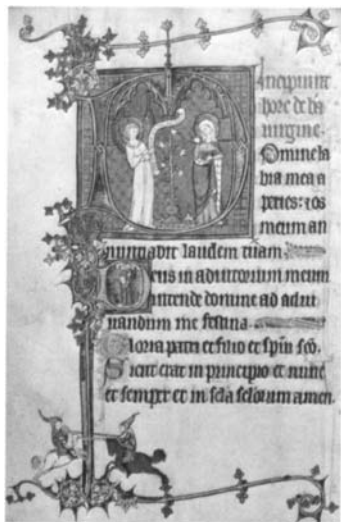 Incipiunt
hore de bā
uirgine.
Domine la
bia mea a
peries: et os
meum an
nunciabit laudem tuam.
Deus in adiutorium meum
intende domine ad adiu
uandum me festina
Gloria patri et filio et spiñ scõ.
Sicut erat in principio et nunc
et semper et in sc̄la sclorum amen.